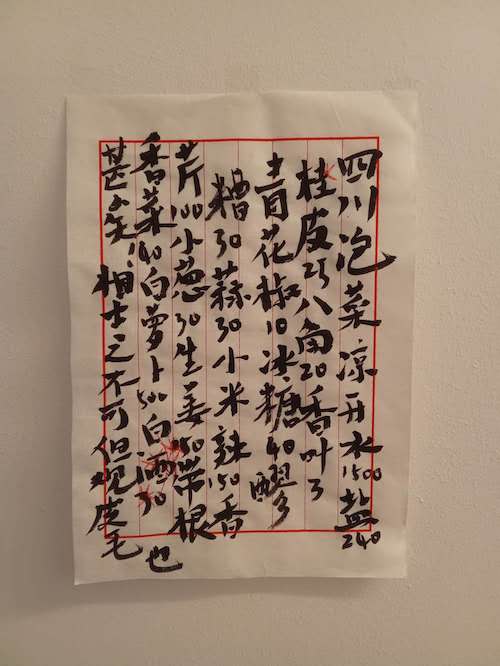 四川泡菜凉开水1500盐240
桂皮25八角20香叶3
青花椒10冰糖40醪
糟30蒜30小米辣150香
芹100小葱30生姜50带根
香菜40白萝卜500白酒30
甚矣!相士之不可但观皮毛
也